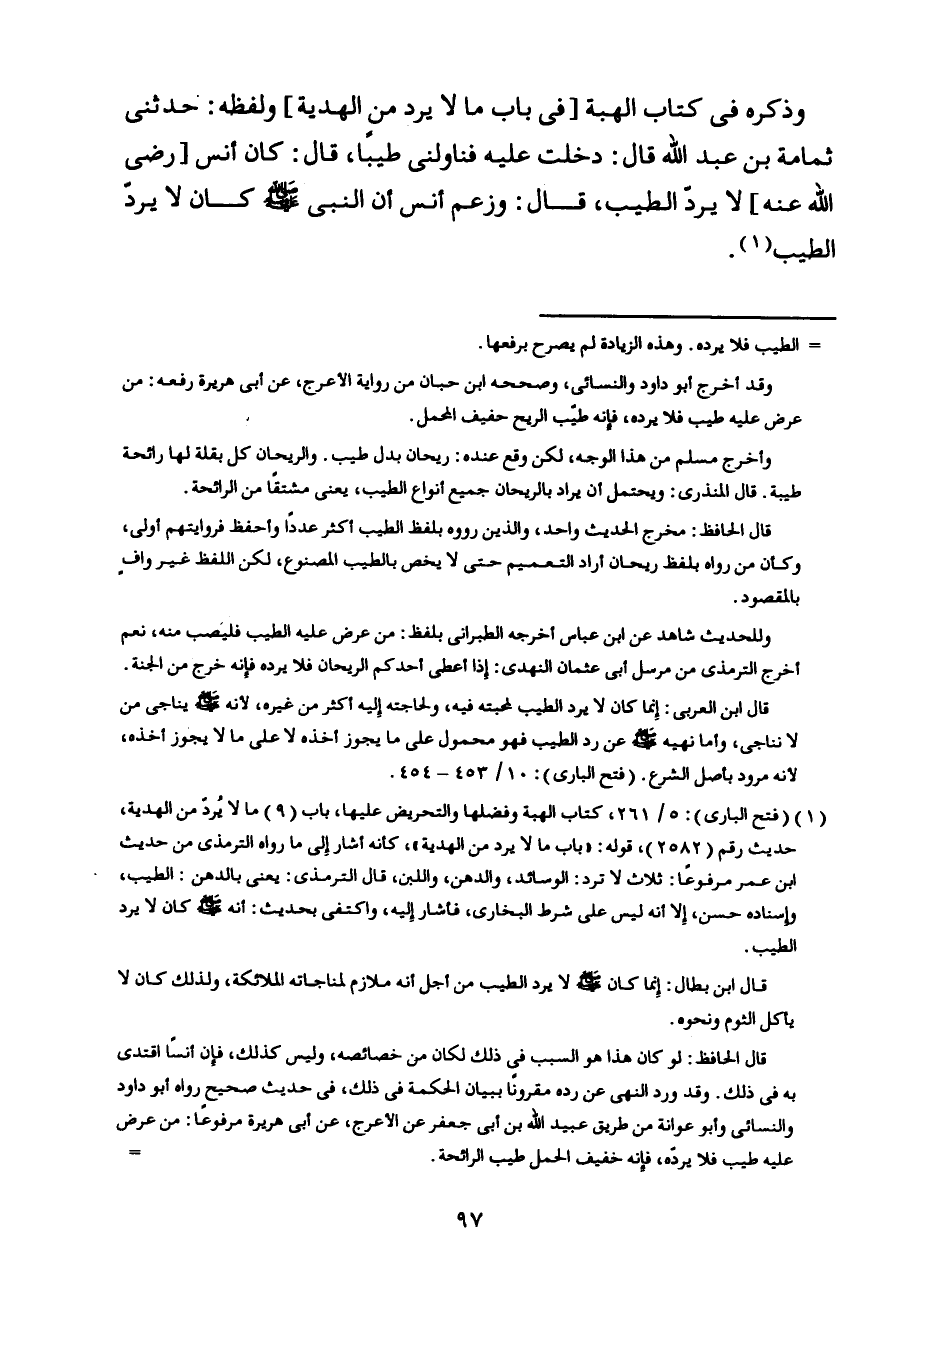 وذكره فى كتاب الهبة [فى باب ما لا يرد من الهدية] ولفظه: حدثنى
ثمامة بن عبد الله قال: دخلت عليه فناولنى طيبًا، قال: كان أنس [رضى
الله عنه] لا يردّ الطيب، قـال: وزعم أنس أن النبى ﷺ كـان لا يردّ
الطيب(١).
= الطيب فلا يرده. وهذه الزيادة لم يصرح برفعها.
وقد أخرج أبو داود والنسائى، وصححه ابن حبان من رواية الأعرج، عن أبى هريرة رفعه: من
عرض عليه طيب فلا يرده، فإنه طيّب الريح خفيف المحمل.
وأخرج مسلم من هذا الوجه، لكن وقع عنده: ريحان بدل طيب. والريحان كل بقلة لها رائحة
طيبة. قال المنذرى: ويحتمل أن يراد بالريحان جميع أنواع الطيب، يعنى مشتقًا من الرائحة.
قال الحافظ: مخرج الحديث واحد، والذين رووه بلفظ الطيب أكثر عددًا وأحفظ فروايتهم أولى،
وكأن من رواه بلفظ ريحان أراد التعميم حتى لا يخص بالطيب المصنوع، لكن اللفظ غير وافٍ
بالمقصود.
وللحديث شاهد عن ابن عباس أخرجه الطبرانى بلفظ: من عرض عليه الطيب فليصب منه، نعم
أخرج الترمذى من مرسل أبى عثمان النهدى: إذا أعطى أحدكم الريحان فلا يرده فإنه خرج من الجنة.
قال ابن العربى: إنما كان لا يرد الطيب لمحبته فيه، ولحاجته إليه أكثر من غيره، لأنه ﷺ يناجى من
لا نناجى، وأما نهيه ﷺ عن رد الطيب فهو محمول على ما يجوز أخذه لا على ما لا يجوز أخذه،
لأنه مرود بأصل الشرع. (فتح البارى): ١٠/ ٤٥٣ – ٤٥٤.
(١) (فتح البارى): ٥/ ٢٦١، كتاب الهبة وفضلها والتحريض عليها، باب (٩) ما لا يُردّ من الهدية،
حديث رقم (٢٥٨٢)، قوله: «باب ما لا يرد من الهدية»، كأنه أشار إلى ما رواه الترمذى من حديث
ابن عمر مرفوعًا: ثلاث لا ترد: الوسائد، والدهن، واللبن، قال الترمذى: يعنى بالدهن : الطيب،
وإسناده حسن، إلا أنه ليس على شرط البخارى، فأشار إليه، واكتفى بحديث: أنه ﷺ كان لا يرد
الطيب.
قـال ابن بطال: إنما كـان ﷺ لا يرد الطيب من أجل أنه ملازم لمناجاته الملائكة، ولذلك كان لا
يأكل الثوم ونحوه.
قال الحافظ: لو كان هذا هو السبب فى ذلك لكان من خصائصه، وليس كذلك، فإن أنسًا اقتدى
به فى ذلك. وقد ورد النهى عن رده مقرونًا ببيان الحكمة فى ذلك، فى حديث صحيح رواه أبو داود
والنسائى وأبو عوانة من طريق عبيد الله بن أبى جعفر عن الأعرج، عن أبى هريرة مرفوعًا: من عرض
عليه طيب فلا يردّه، فإنه خفيف الحمل طيب الرائحة. =
٩٧